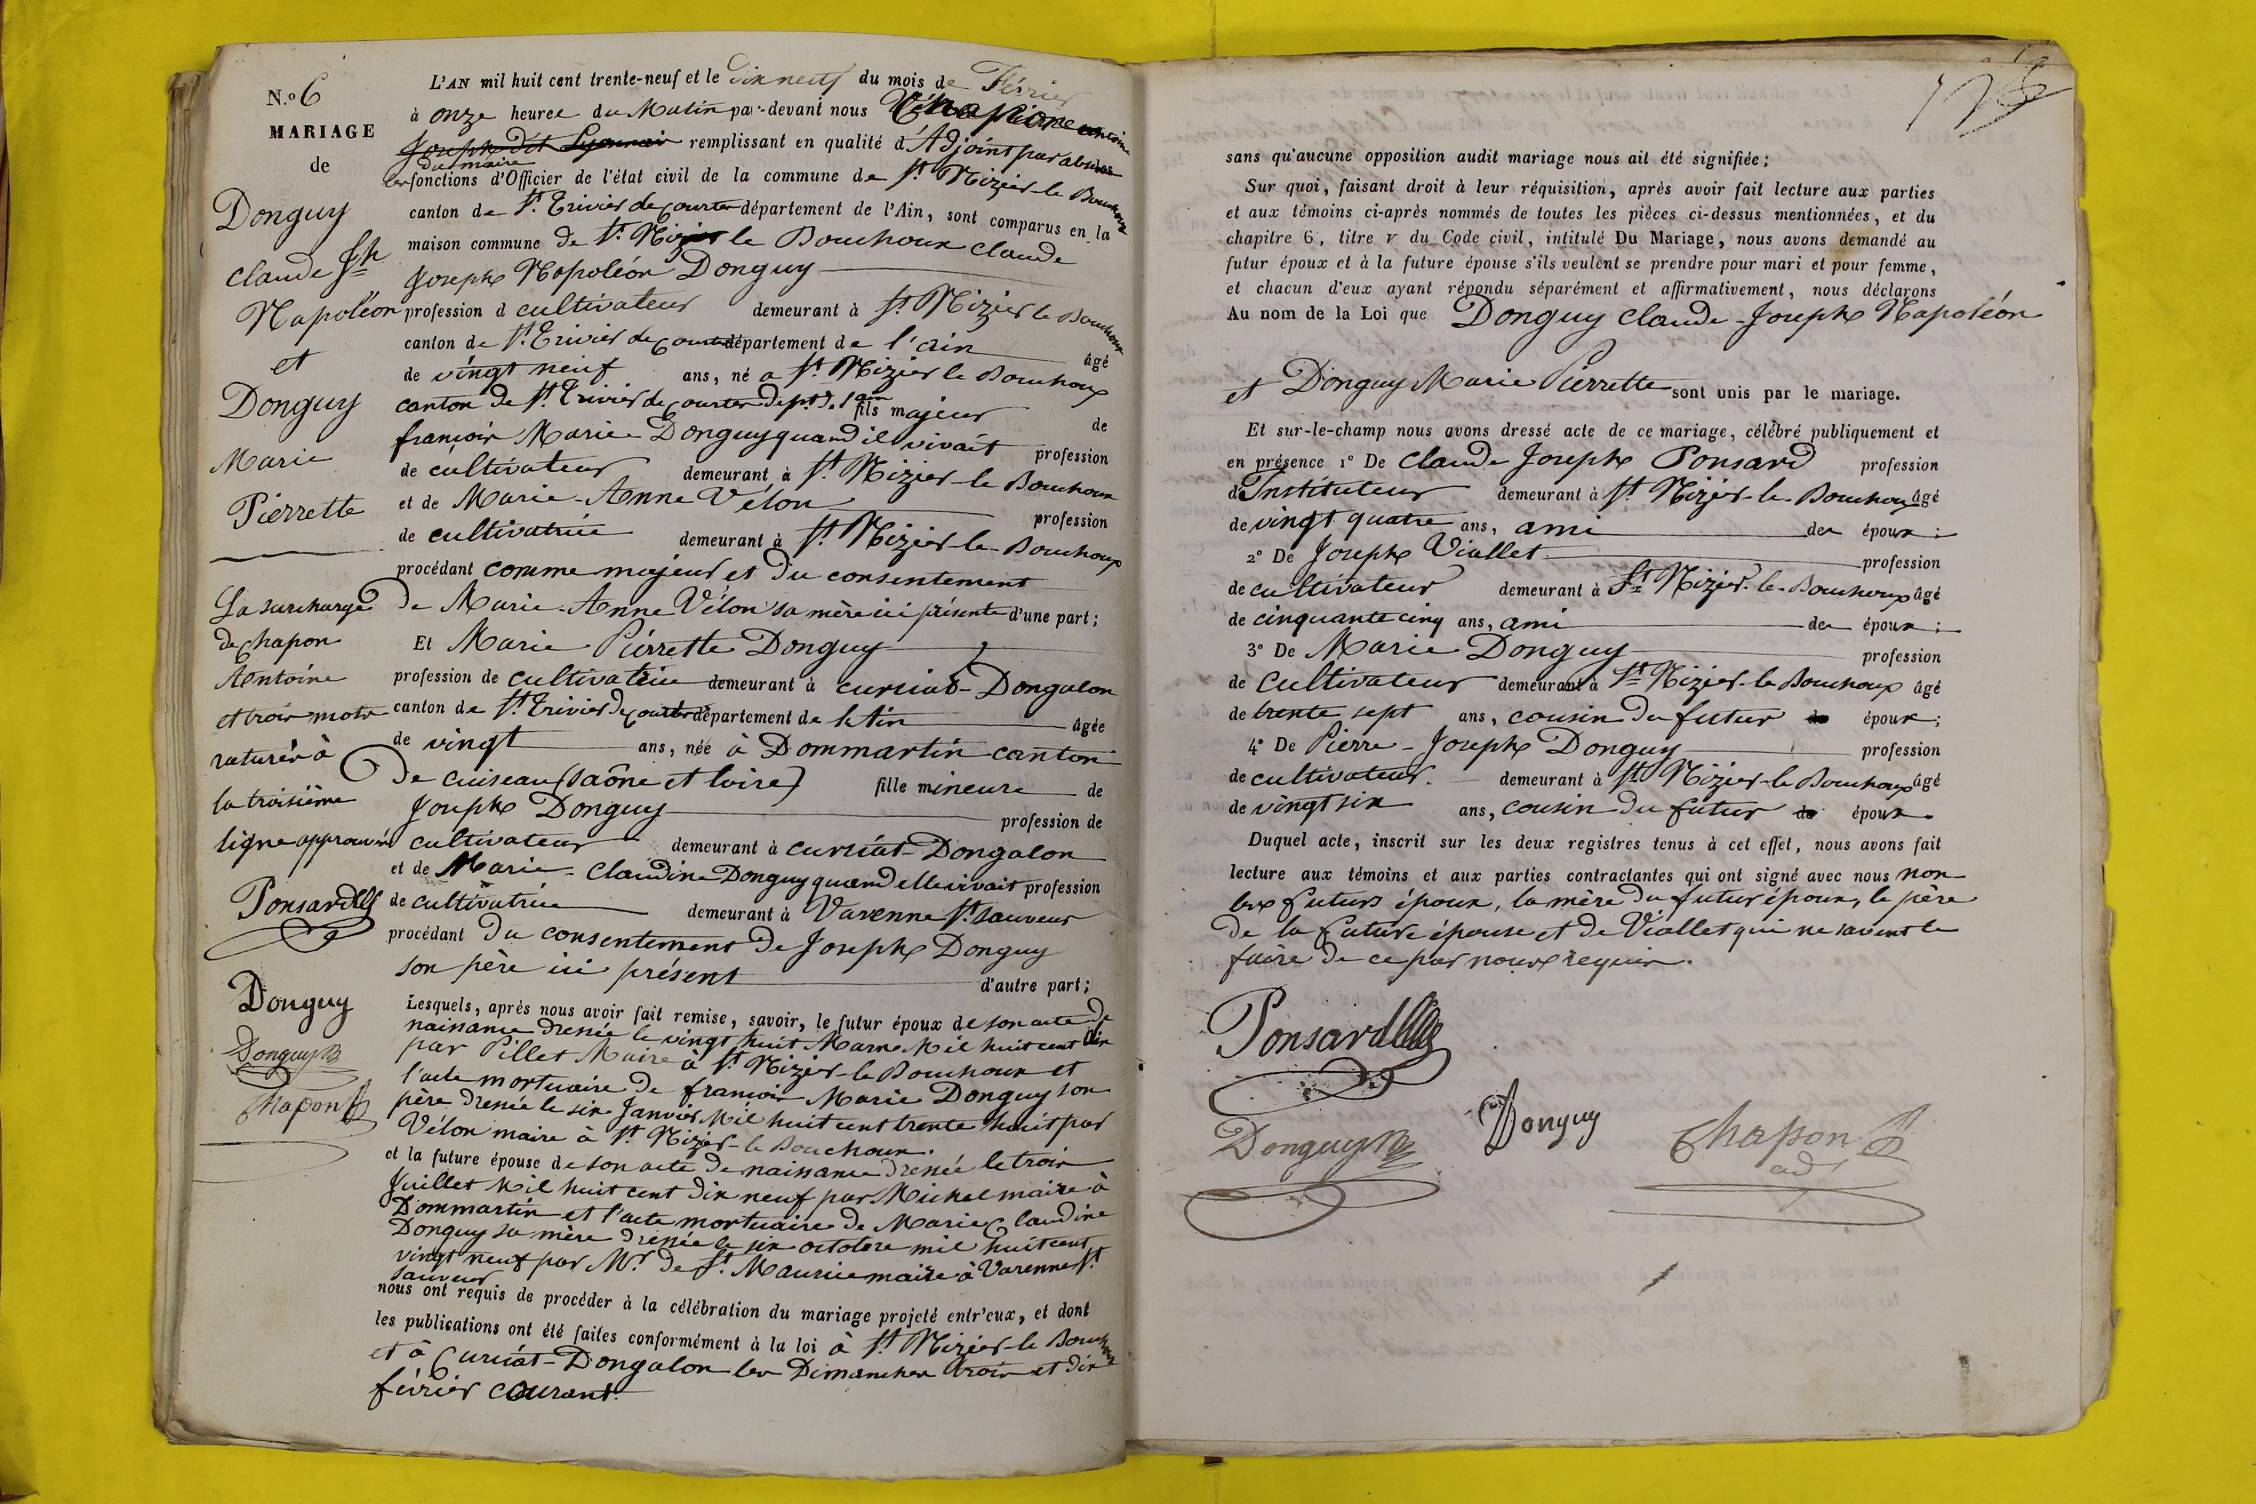 N.º 6
MARIAGE
de
Donguy
Claude Jh
Napoléon
et
Donguy
Marie
Pierrette
La surcharge
de Chapon
Antoine
et trois mots
raturés à
la troisième
ligne approuvés
Ponsard
Donguy
Donguy
Chapon
L'AN mil huit cent trente-neuf et le dix neuf du mois de Février
à onze heures du Matin par-devant nous Chapon Antoine
Joseph dit Lyonnais remplissant en qualité d'Adjoint par absence
du maire
les fonctions d'Officier de l'état civil de la commune de St Nizier-le Bouchoux
canton de St Trivier de Courtes département de l'Ain, sont comparus en la
maison commune de St Nizier le Bouchoux Claude
Joseph Napoléon Donguy
profession d cultivateur demeurant à St Nizier le Bouchoux
canton de St Trivier de Courtes département de l'ain âgé
de vingt neuf ans, né a St Nizier le Bouchoux
canton de St Trivier de Courtes dept de l'ain fils majeur de
françois Marie Donguy quand il vivait profession
de cultivateur demeurant à St Nizier-le Bouchoux
et de Marie-Anne Vélon profession
de cultivatrice demeurant à St Nizier-le-Bouchoux
procédant comme majeur et du consentement
de Marie-Anne Vélon sa mère ici présente d'une part;
Et Marie Pierrette Donguy
profession de cultivatrice demeurant à curciat-Dongalon
canton de St Trivier de Courtes département de l'Ain âgée
de vingt ans, née à Dommartin canton
de cuiseau (Saône et Loire) fille mineure de
Joseph Donguy profession de
cultivateur demeurant à curciat-Dongalon
et de Marie-Claudine Donguy quand elle vivait profession
de cultivatrice demeurant à Varenne St Sauveur
procédant du consentement de Joseph Donguy
son père ici présent d'autre part;
Lesquels, après nous avoir fait remise, savoir, le futur époux de son acte de
naissance dressée le vingt huit Mars Mil huit cent dix
par Pillet Maire à St Nizier-le Bouchoux et
l'acte mortuaire de françois Marie Donguy son
père dressée le six Janvier Mil huit cent trente huit par
Vélon maire à St Nizier-le Bouchoux.
et la future épouse de son acte de naissance dressée le trois
Juillet Mil huit cent dix neuf par Michel maire à
Dommartin et l'acte mortuaire de Marie Claudine
Donguy sa mère dressée le six octobre mil huit cent
vingt neuf par Mr de St Maurice maire à Varenne St
Sauveur
nous ont requis de procéder à la célébration du mariage projeté entr'eux, et dont
les publications ont été faites conformément à la loi à St Nizier-le Bouchoux
et à Curciat-Dongalon les Dimanches trois et dix
février courant.
sans qu'aucune opposition audit mariage nous ait été signifiée;
Sur quoi, faisant droit à leur réquisition, après avoir fait lecture aux parties
et aux témoins ci-après nommés de toutes les pièces ci-dessus mentionnées, et du
chapitre 6, titre v du Code civil, intitulé Du Mariage, nous avons demandé au
futur époux et à la future épouse s'ils veulent se prendre pour mari et pour femme,
et chacun d'eux ayant répondu séparément et affirmativement, nous déclarons
Au nom de la Loi que Donguy Claude-Joseph Napoléon
et Donguy Marie Pierrette sont unis par le mariage.
Et sur-le-champ nous avons dressé acte de ce mariage, célébré publiquement et
en présence 1º De Claude Joseph Ponsard profession
d'Instituteur demeurant à St Nizier-le-Bouchoux âgé
de vingt quatre ans, ami des époux;
2º De Joseph Viallet profession
de cultivateur demeurant à St Nizier-le-Bouchoux âgé
de cinquante cinq ans, ami des époux;
3º De Marie Donguy profession
de Cultivateur demeurant à St Nizier-le Bouchoux âgé
de trente sept ans, cousin du futur de époux;
4º De Pierre-Joseph Donguy profession
de cultivateur demeurant à St Nizier-le Bouchoux âgé
de vingt six ans, cousin du futur de époux.
Duquel acte, inscrit sur les deux registres tenus à cet effet, nous avons fait
lecture aux témoins et aux parties contractantes qui ont signé avec nous non
les futurs époux, la mère du futur époux, le père
de la future épouse et de Viallet qui ne savent le
faire de ce par nous requis.
Ponsard
Donguy
Donguy
Chapon
adj